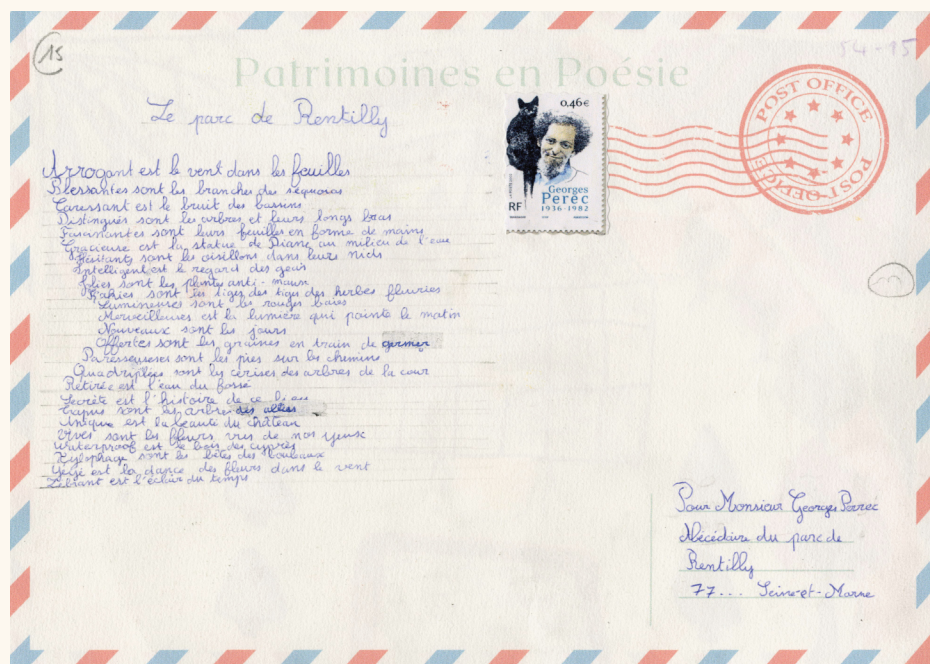 15
54-15
Patrimoines en Poésie
Le parc de Rentilly
0,46€
Georges
Perec
1936-1982
RF
POST OFFICE
POST OFFICE
Arrogant est le vent dans les feuilles
Blessantes sont les branches des séquoias
Caressant est le bruit des bassins
Distingués sont les arbres et leurs longs bras
Fascinantes sont leurs feuilles en forme de mains
Gracieuse est la statue de Diane au milieu de l'eau
Hésitants sont les oisillons dans leurs nids
Intelligent est le regard des geais
Jolies sont les plantes anti-maux
Kakies sont les tiges des tiges des herbes fleuries
Lumineuses sont les rouges baies
Merveilleuses est la lumière qui pointe le matin
Nouveaux sont les jours
Offertes sont les graines en train de germer
Paresseuses sont les pies sur les chemins
Quadripliées sont les cerises des arbres de la cour
Retirée est l'eau du fossé
Secrète est l'histoire de ce lieu
Tapus sont les arbres des allées
Unique est la beauté du château
Vives sont les fleurs vues de nos yeux
Waterproof est le bois des cyprès
Xylophage sont les bêtes des bouleaux
Yéyé est la dance des fleurs dans le vent
Zébrant est l'éclair du temps
Pour Monsieur Georges Perrec
Abécédaire du parc de
Rentilly
77... Seine-et-Marne